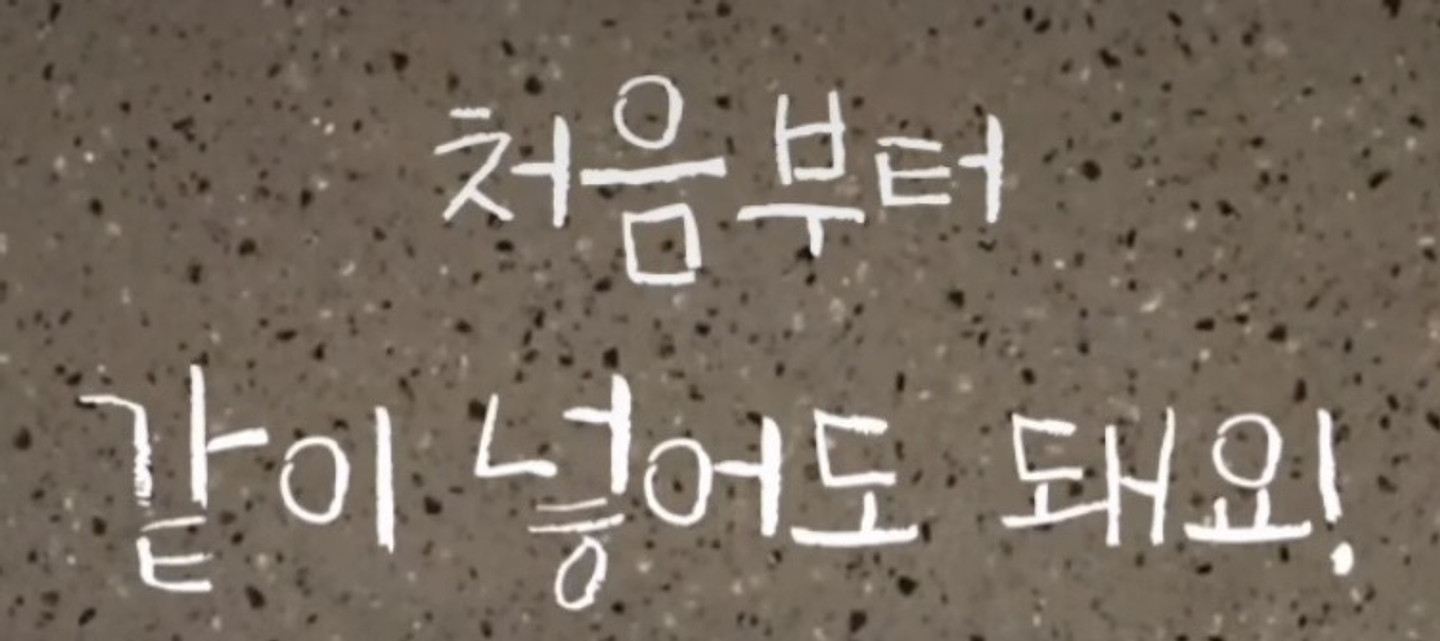 처음부터
같이 넣어도 돼요!